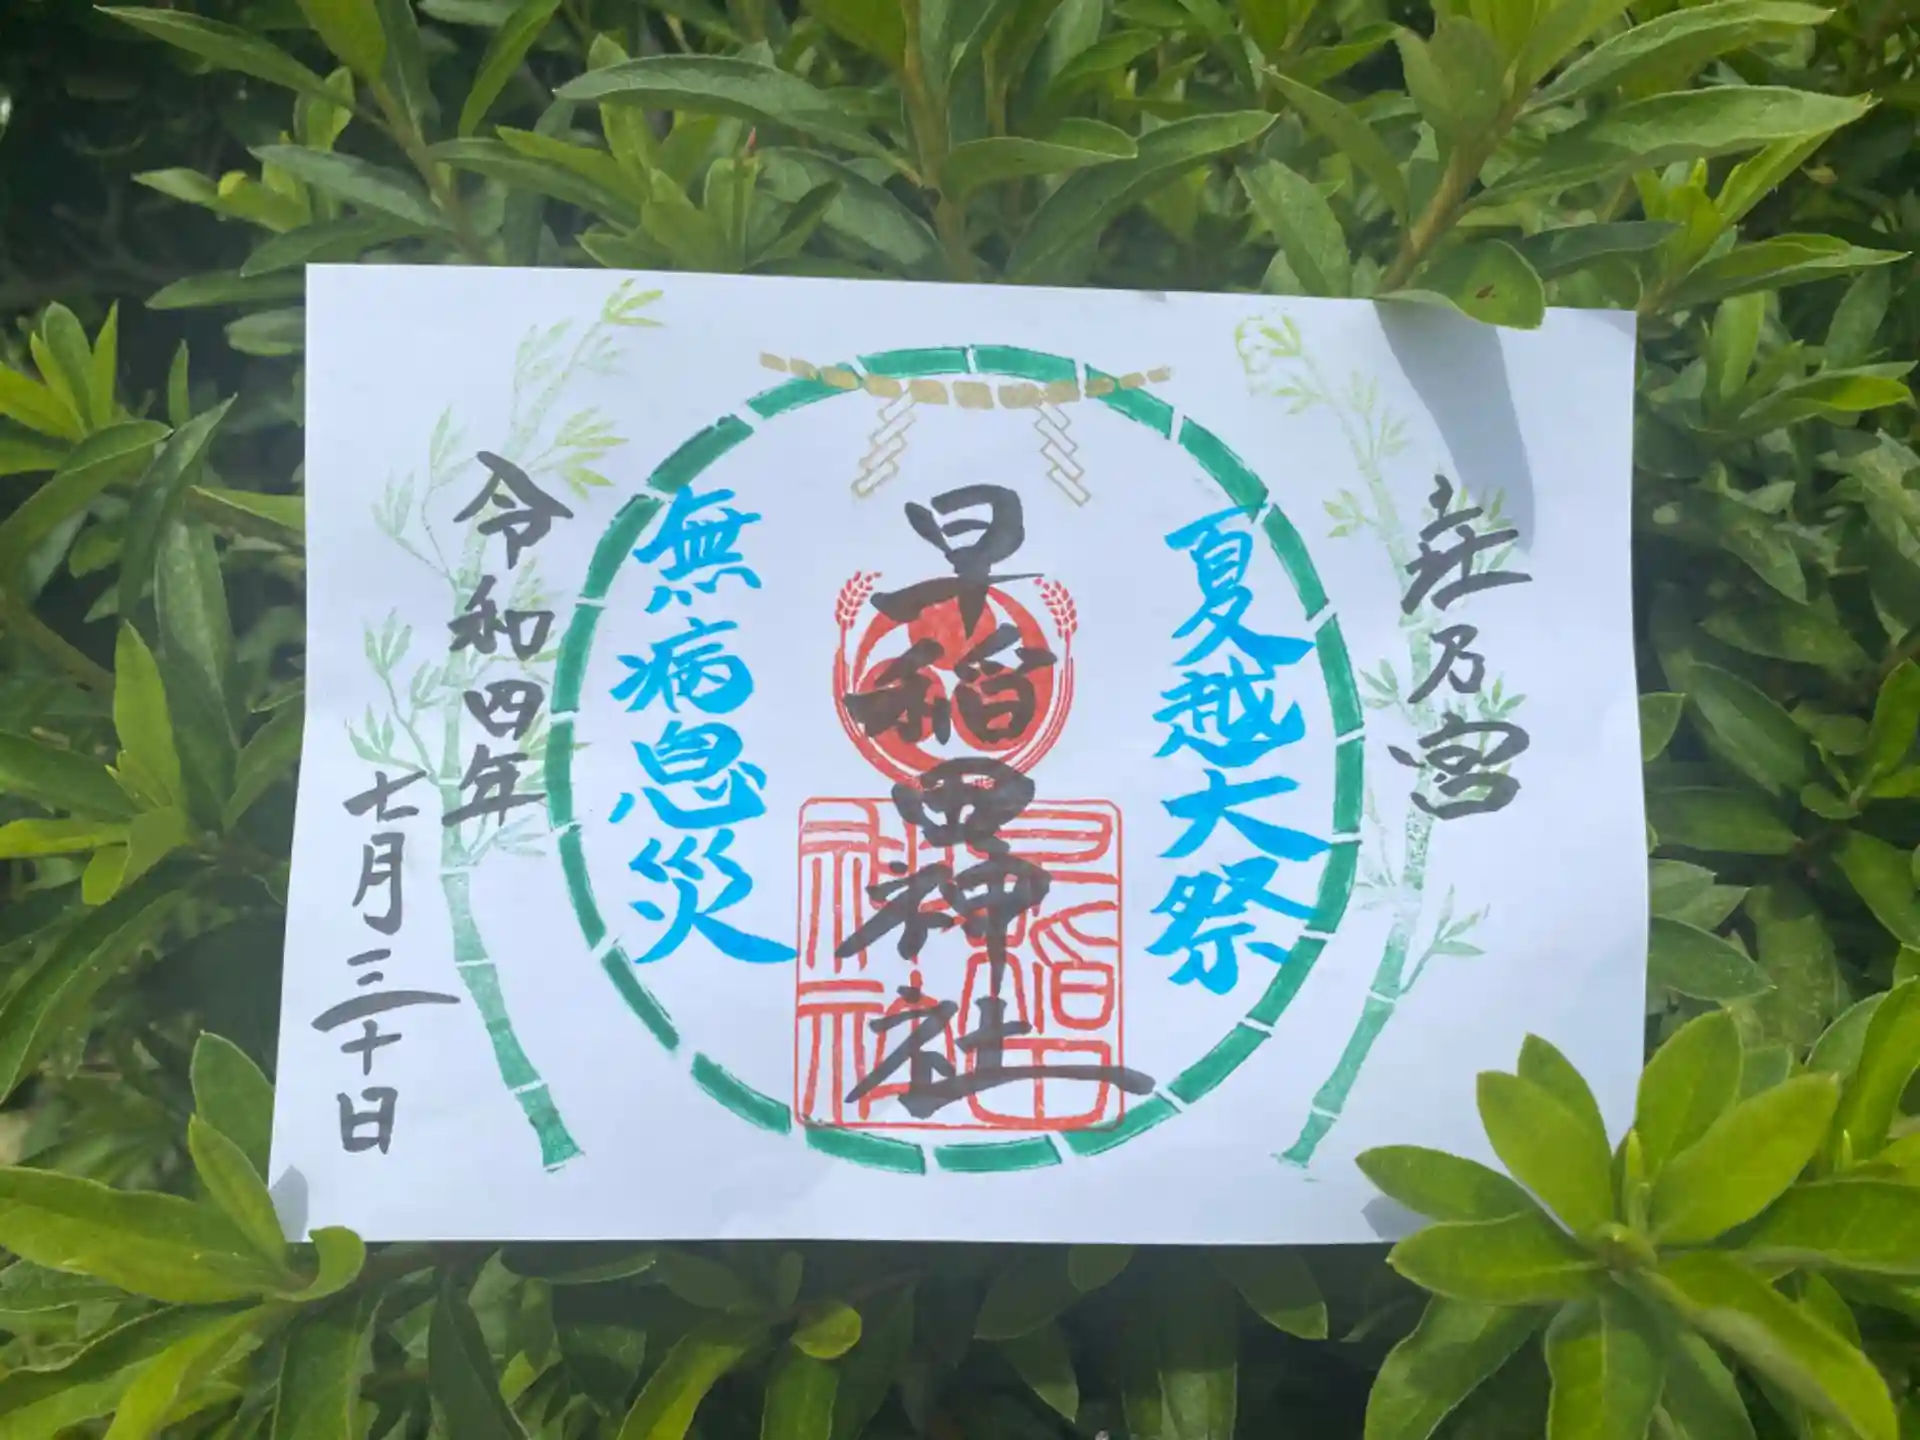 荘乃宮
夏越大祭
早稲田神社
早稲田神社
無病息災
令和四年
七月三十日